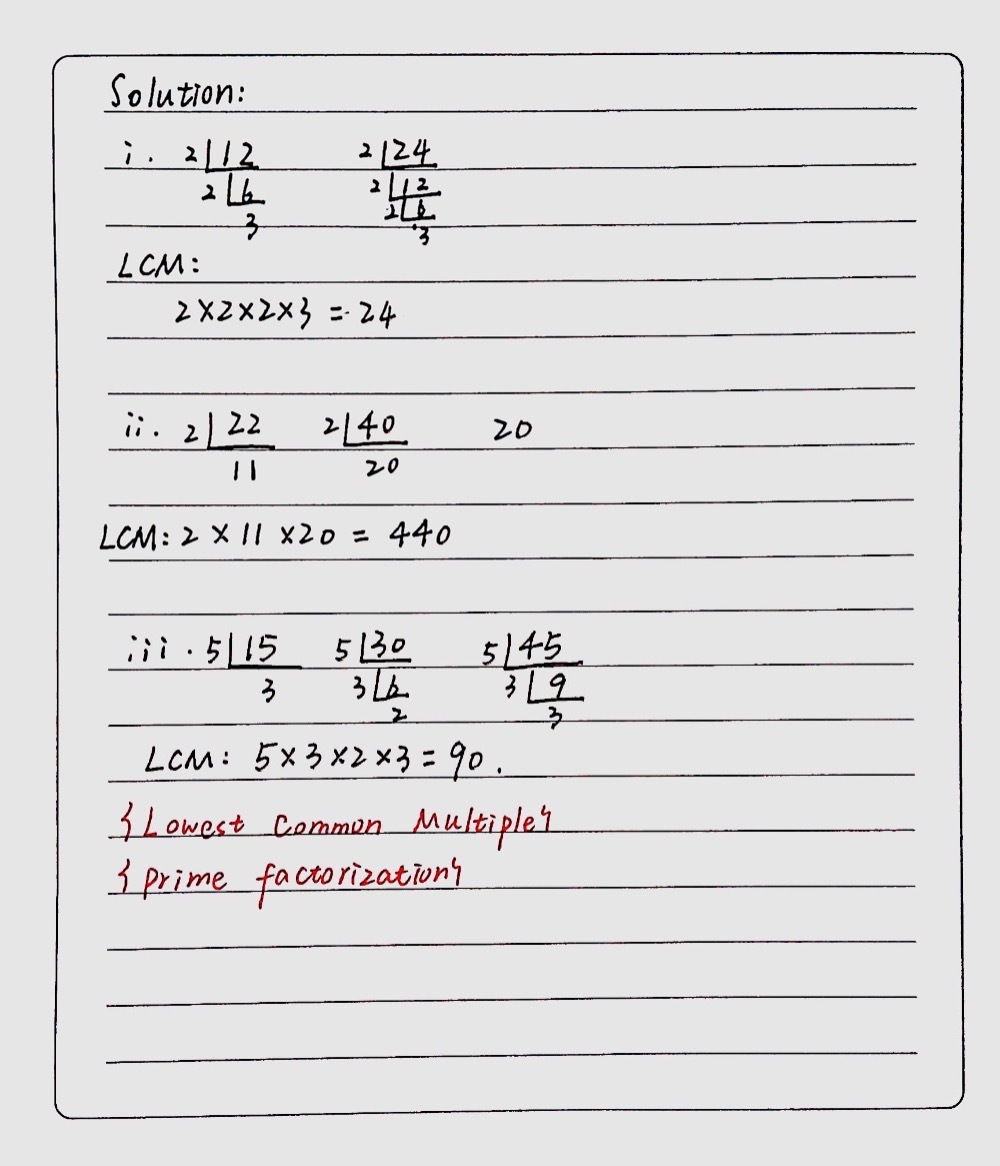 Solution:
i. 2|12 2|24
2|6 2|12
2|6
3 3
LCM:
2×2×2×3 = 24
ii. 2|22 2|40 20
11 20
LCM: 2 × 11 × 20 = 440
iii. 5|15 5|30 5|45
3 3|6 3|9
2 3
LCM: 5×3×2×3=90.
{Lowest Common Multiple}
{prime factorization}